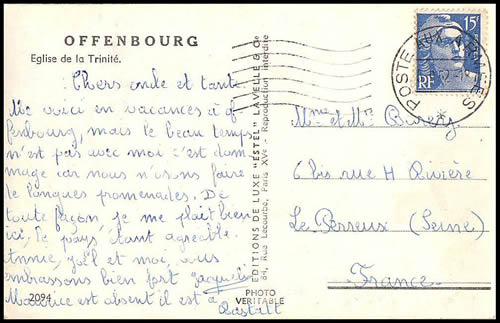 OFFENBOURG
Eglise de la Trinité.
Chers oncle et tante
Me voici en vacances à of
fenbourg, mais le beau temps
n'est pas avec moi c'est dom
mage car nous n'osons faire
de longues promenades. De
toute façon je me plait bien
ici, le pays étant agréable.
Annie, Joël et moi, vous
embrassons bien fort Jacqueline
Maurice est absent il est à
Rastatt
2094
EDITIONS DE LUXE "ESTEL" LAVELLE & Cie
84, Rue Lecourbe, Paris XVe - Reproduction Interdite
PHOTO
VERITABLE
15F
RF
POSTE AUX ARMÉES
Mme et Mr
6 bis rue H Rivière
Le Perreux (Seine)
France